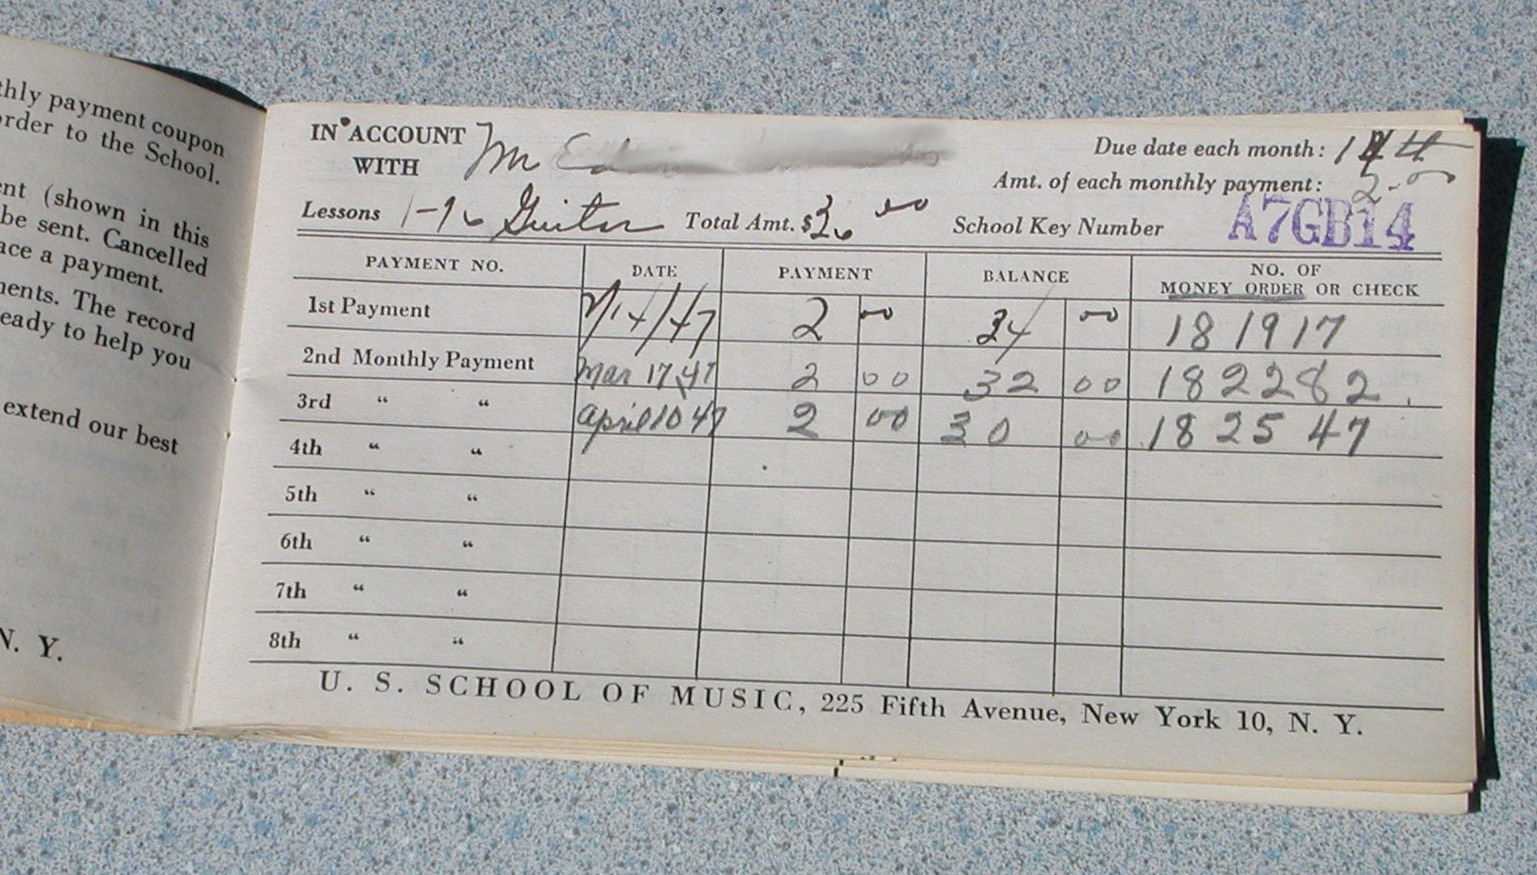 thly payment coupon
order to the School.
ent (shown in this
be sent. Cancelled
ace a payment.
ments. The record
eady to help you
extend our best
N. Y.
IN ACCOUNT
WITH
Due date each month:
Amt. of each monthly payment: 2.00
Lessons 1-96 Guitar Total Amt. $36 00 School Key Number A7GB14
PAYMENT NO. DATE PAYMENT BALANCE NO. OF MONEY ORDER OR CHECK
1st Payment 2 00 34 00 181917
2nd Monthly Payment Mar 17, 47 2 00 32 00 182282
3rd " " April 10 47 2 00 30 00 182547
4th " "
5th " "
6th " "
7th " "
8th " "
U. S. SCHOOL OF MUSIC, 225 Fifth Avenue, New York 10, N. Y.